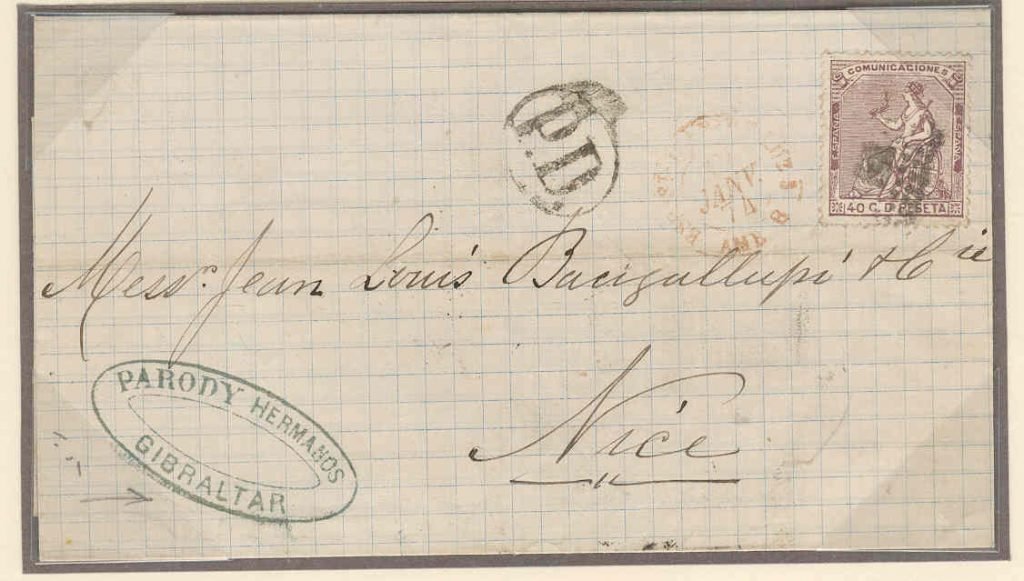 COMUNICACIONES
ESPAÑA
ESPAÑA
40 C. D PESETA
P.D.
JANV.
74
AMB
Messrs. Jean Louis Bacigallupi & Cie
Nice
PARODY HERMANOS
GIBRALTAR